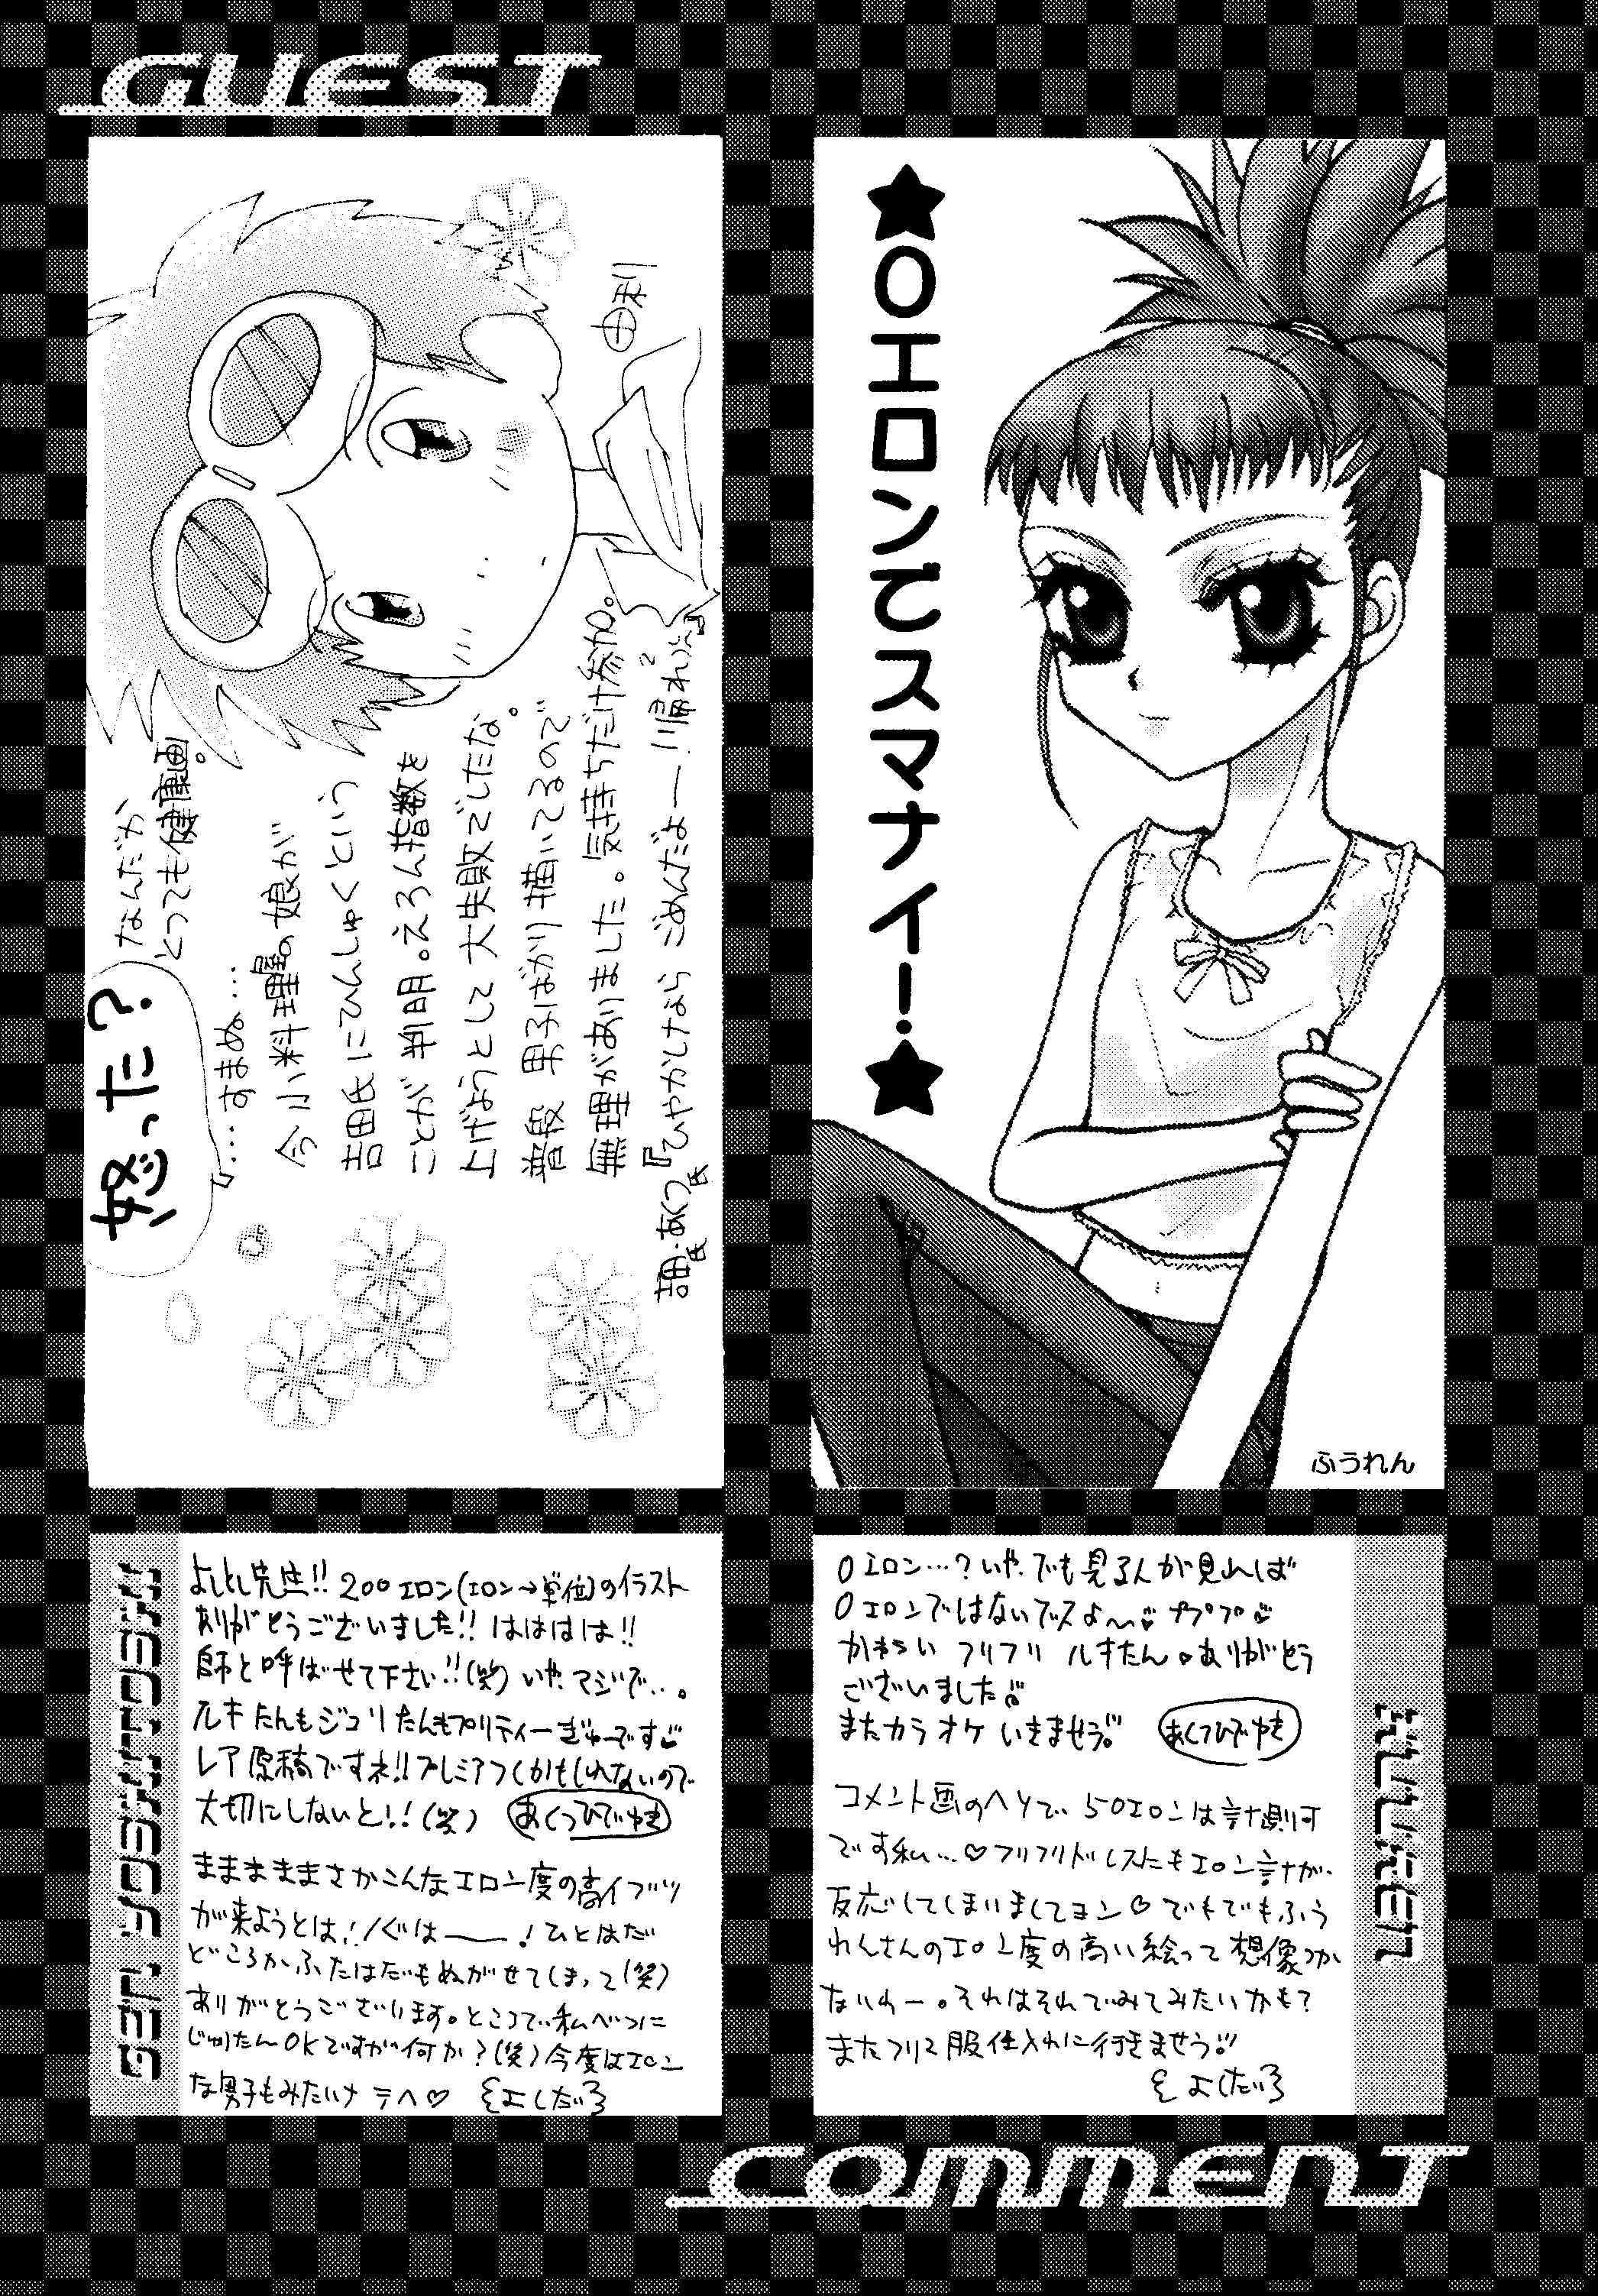 GUEST
★0エロンでスマナイー!★
ふうれん
なんだか
とっても健康画。
怒った?
『…すまぬ…
今小料理屋の娘が
吉田氏にひんしゅくという
ことが判明。えろん指数を
上げようとして大失敗でしたな。
普段男子ばかり描いてるので
無理がありました。気持ちだけ参加。
『ひやかしなら ごめんだよー!!帰れっ』
0エロン…?いや、でも見る人が見れば
0エロンではないでスよ〜 ププププ
かわいい フリフリ ルキたん ありがとう
ございました
またカラオケいきませう。 あくつひでゆき
コメント画のヘソで、50エロンは計測可
です私…♡フリフリドレスにもエロン計が、
反応してしまいましてヨン♡でもでもふう
れんさんのエロン度の高い絵って想像つか
ないわー。それはそれでみてみたいかも?
またフリフリ服仕入れに行きませう!!
よしだ
よしとし先生!! 200エロン(エロン→単位)のイラスト
ありがとうございました!! はははは!!
師と呼ばせて下さい!!(笑) いや、マジで…。
ルキたんもジュリたんもプリティーぎゅーです
レア原稿ですネ!!プレミアつくかもしれないので
大切にしないと!!(笑) あくつひでゆき
まままままさかこんなエロン度の高イブツ
が来ようとは!!ぐはー!ひとはだ
どころかふたはだもぬがせてしまって(笑)
ありがとうございます。ところで、私べつに
じゅりたんOKですが何か?(笑)今度はエロン
な男子もみたいナ テヘ♡ よしだ
COMMENT